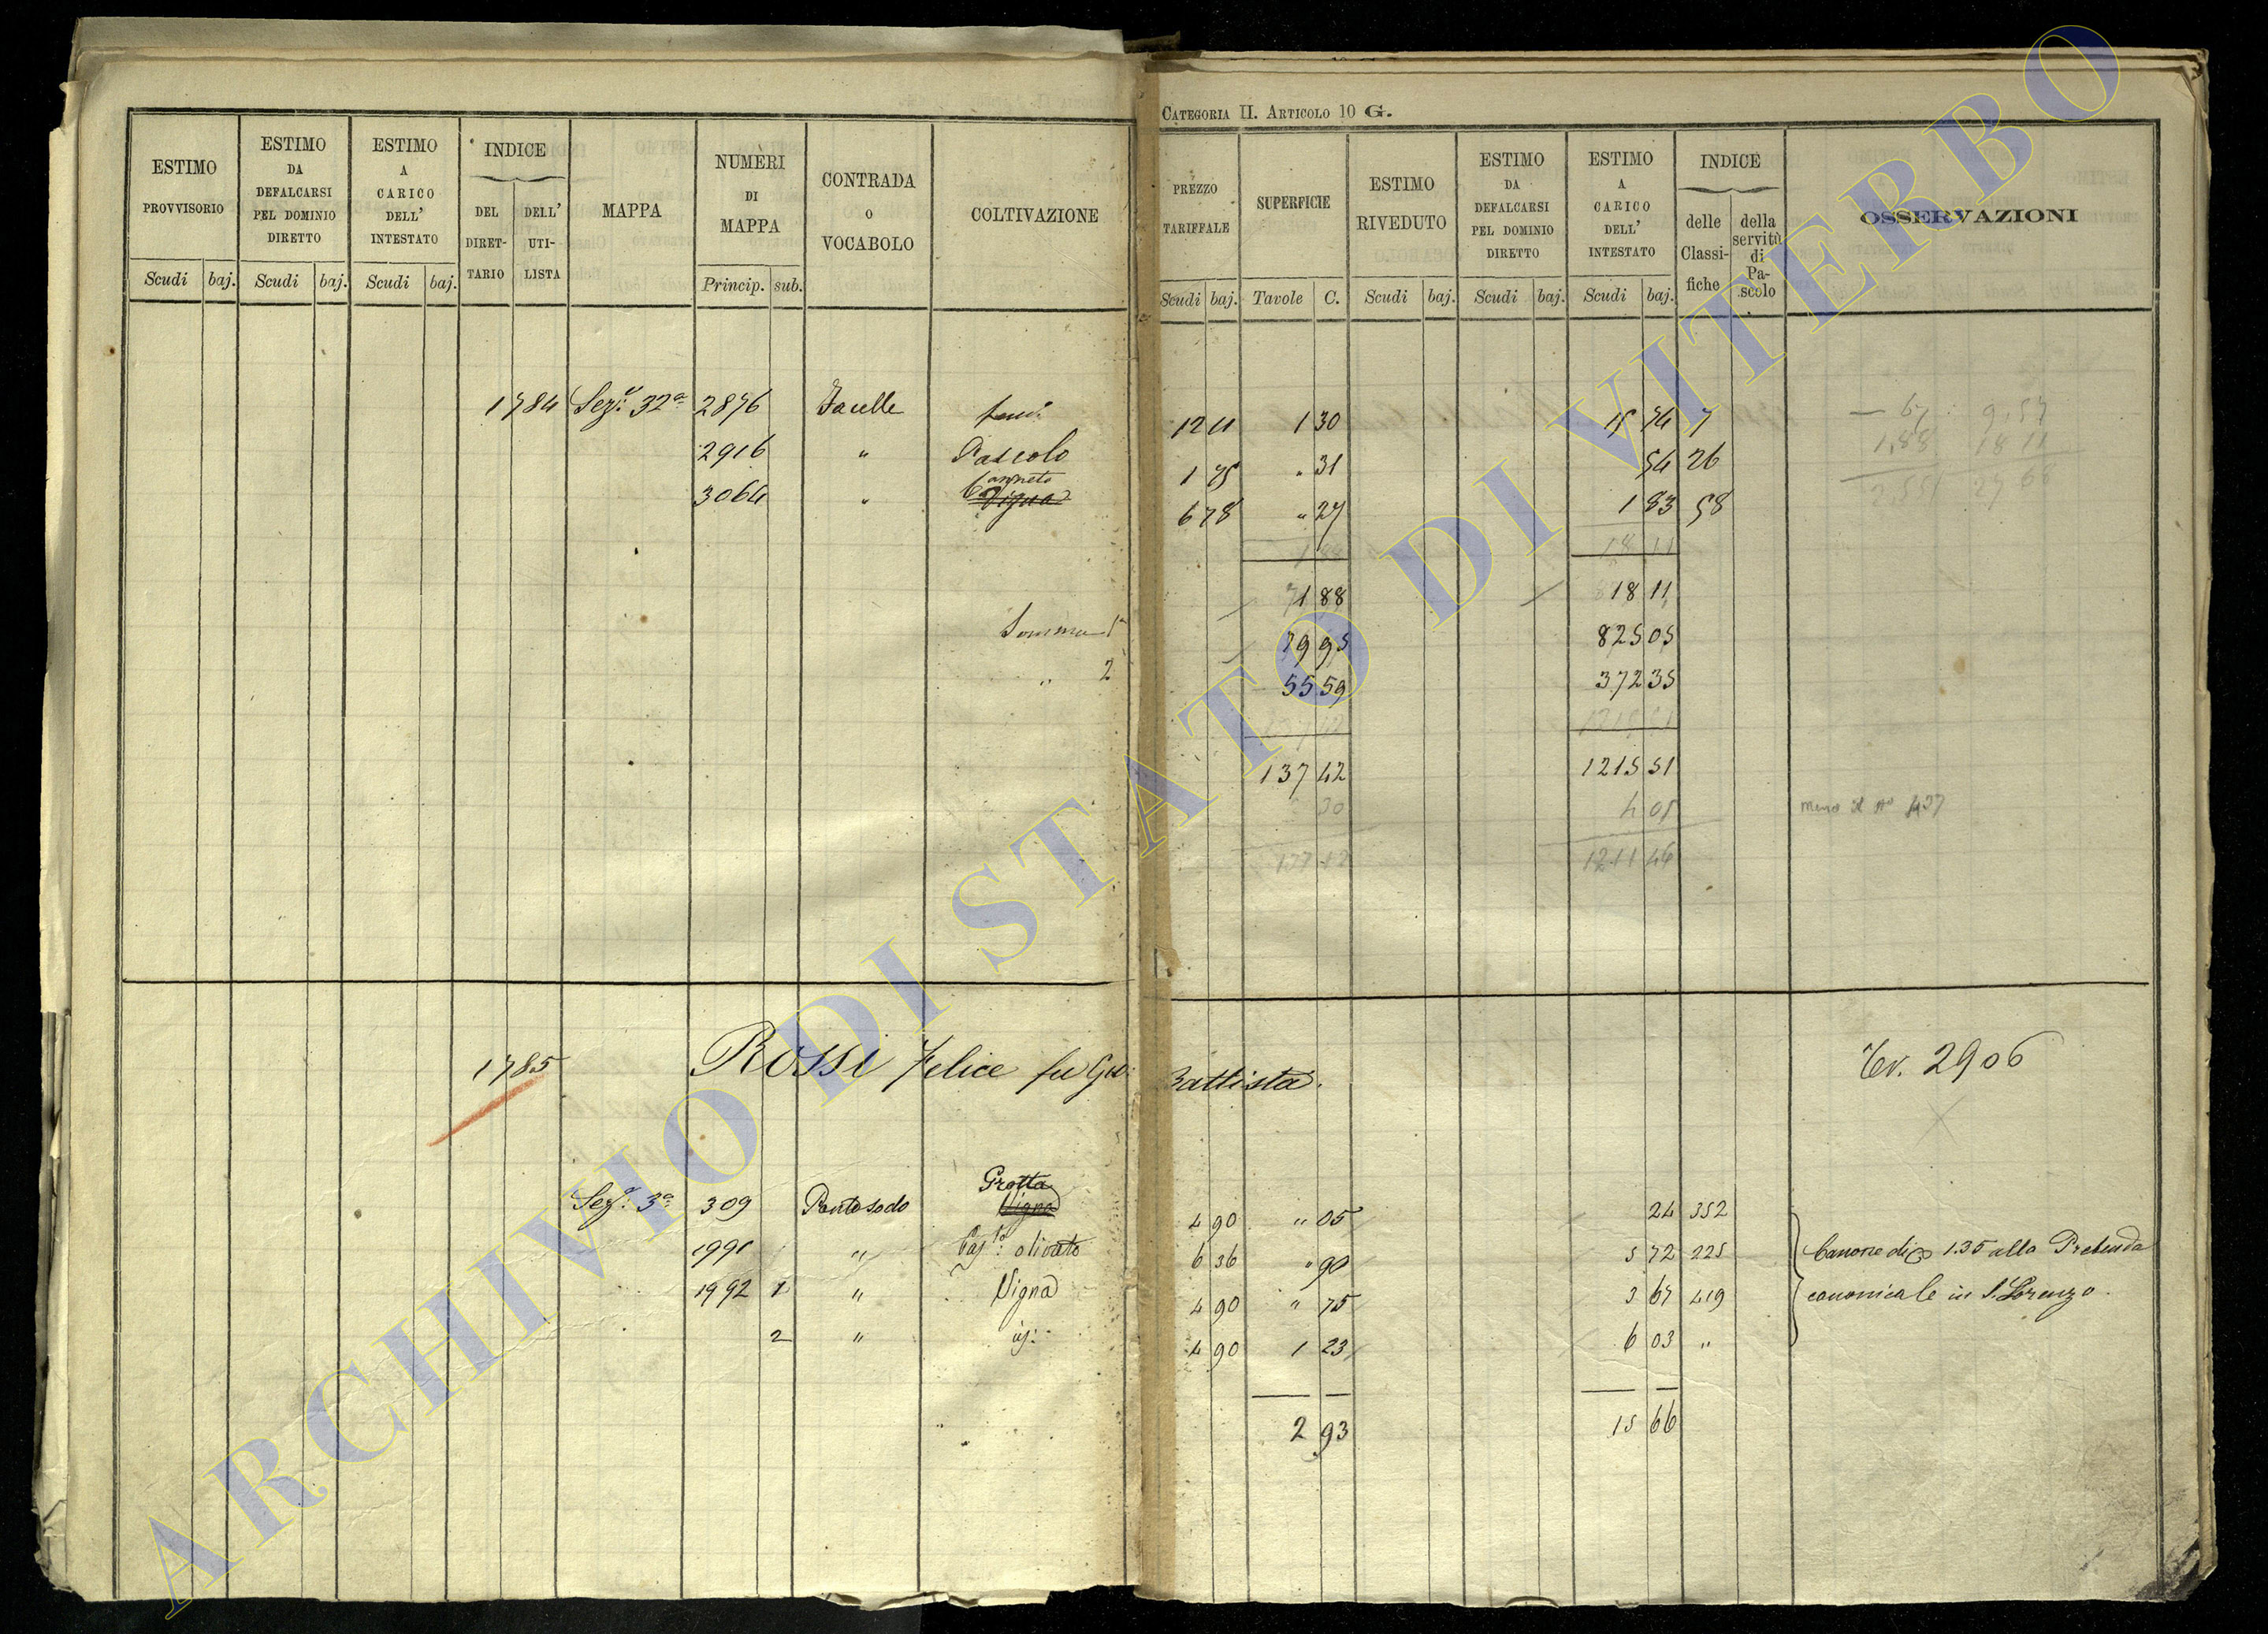 CATEGORIA II. ARTICOLO 10 G.
ESTIMO PROVVISORIO Scudi baj.
ESTIMO DA DEFALCARSI PEL DOMINIO DIRETTO Scudi baj.
ESTIMO A CARICO DELL' INTESTATO Scudi baj.
INDICE DEL DIRETTARIO DELL' UTILISTA
MAPPA
NUMERI DI MAPPA Princip. sub.
CONTRADA O VOCABOLO
COLTIVAZIONE
PREZZO TARIFFALE Scudi baj.
SUPERFICIE Tavole C.
ESTIMO RIVEDUTO Scudi baj.
ESTIMO DA DEFALCARSI PEL DOMINIO DIRETTO Scudi baj.
ESTIMO A CARICO DELL' INTESTATO Scudi baj.
INDICE delle Classifiche della servitù di Pascolo
OSSERVAZIONI
1784 Sez.e 32a 2876 Jacelle 12 11 1 30 15 74 7
2916 " Pascolo 1 75 " 31 54 26
3064 " Canneto Vigna 6 78 " 27 1 83 58
1 88 18 11
Somma 1a 79 95 825 05
" 2 55 59 372 35
137 42 1215 51
30 4 05 meno il No 437
137 12 1211 46
1785 ROSSI Felice fu Gio: Battista. Ev. 2906
Sez.e 3a 309 Pontesodo Grotta Vigna 4 90 " 05 24 352
1991 " Paslo: olivato 6 36 " 90 5 72 225 Canone di 1.35 alla Prebenda
1992 1 " Vigna 4 90 " 75 3 67 419 canonicale in S. Lorenzo.
2 " id: 4 90 1 23 6 03 "
2 93 15 66
ARCHIVIO DI STATO DI VITERBO